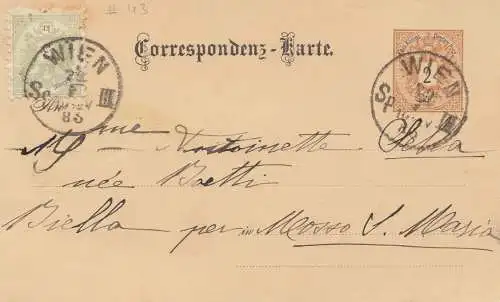 # 43
Correspondenz-Karte.
WIEN
85
III
WIEN
2
III
Mme Antoinette Serra
née Boetti
Biella per in Mosso S. Maria